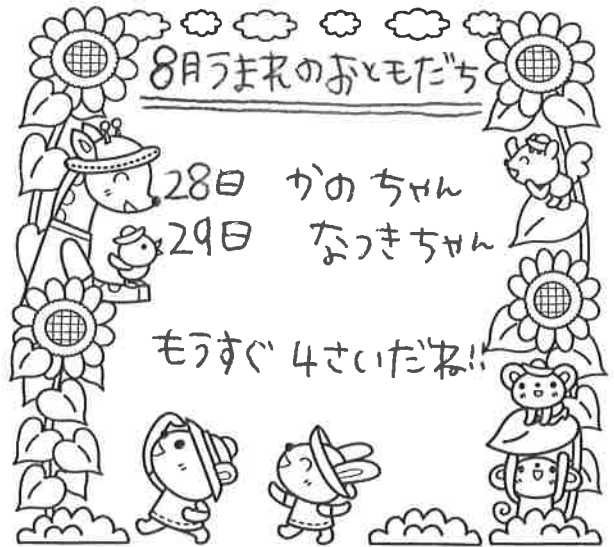 8月うまれのおともだち
28日 かのちゃん
29日 なつきちゃん
もうすぐ 4さいだね!!